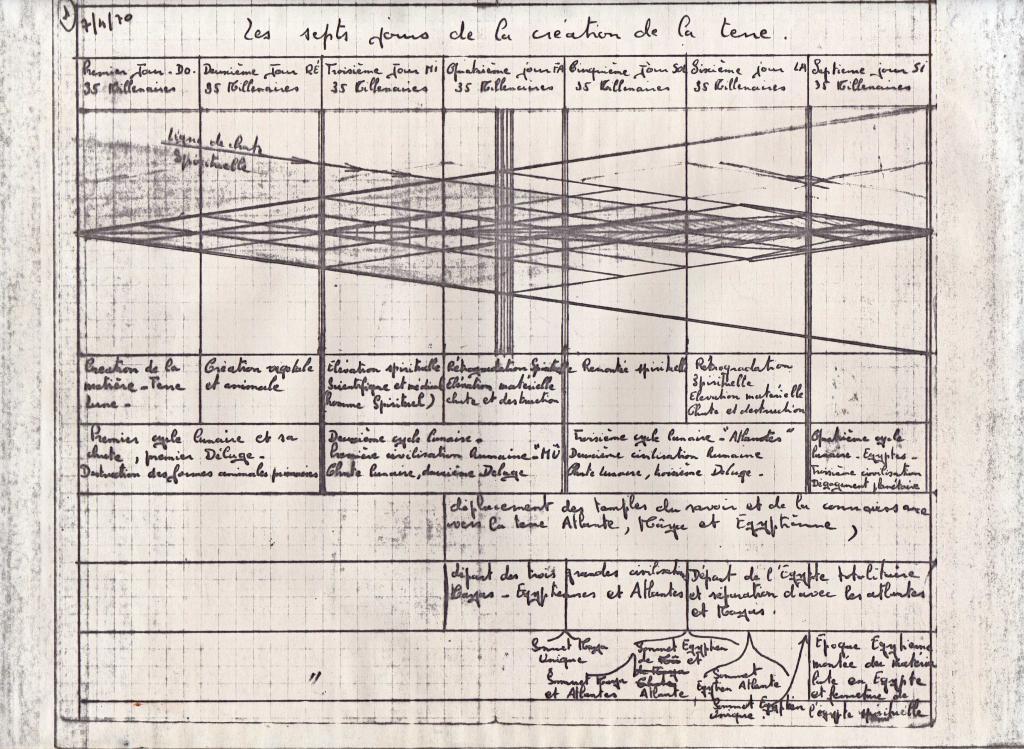 7/4/70
Les septs jours de la création de la terre.
Premier Jour - DO.
35 Millenaires
Deuxième Jour RÉ
35 Millenaires
Troisième Jour MI
35 Millenaires
Quatrième jour FA
35 Millenaires
Cinquième Jour SOL
35 Millenaires
Sixième jour LA
35 Millenaires
Septieme jour SI
35 Millenaires
Ligne de chute
Spirituelle
Creation de la
matière - Terre
lune -
Création vegetale
et animale
Elevation spirituelle
Scientifique et
homme Spirituel)
Rétrogradation Spirituelle
Elévation matérielle
chute et destruction
Remontée spirituelle
Rétrogradation
Spirituelle
Elevation matérielle
Chute et destruction
Premier cycle lunaire et sa
chute, premier Déluge -
Destruction des formes animales primaires
Deuxième cycle lunaire -
Première civilisation humaine - "MÛ"
Chute lunaire, deuxième Deluge -
Troisième cycle lunaire - "Atlantes"
Deuxième civilisation humaine
Chute lunaire, troisième Deluge -
Quatrième cycle
lunaire - Egyptes -
Troisième civilisation
Dégagement planétaire
déplacement des temples du savoir et de la connaissance
vers la terre Atlante, Mâya et Egyptienne,
départ des trois grandes civilisations
Mayas - Egyptiennes et Atlantes
Départ de l'Egypte totolitaire
et séparation d'avec les atlantes
et Mayas.
Sommet Maya
Unique
Sommet Maya
et Atlantes
Sommet Egyptien
de et
Atlante
Sommet
Egyptien Atlante
Sommet Egyptien
Unique
"
Epoque Egyptienne
montée du
en Egypte
et fermeture de
l'égypte spirituelle